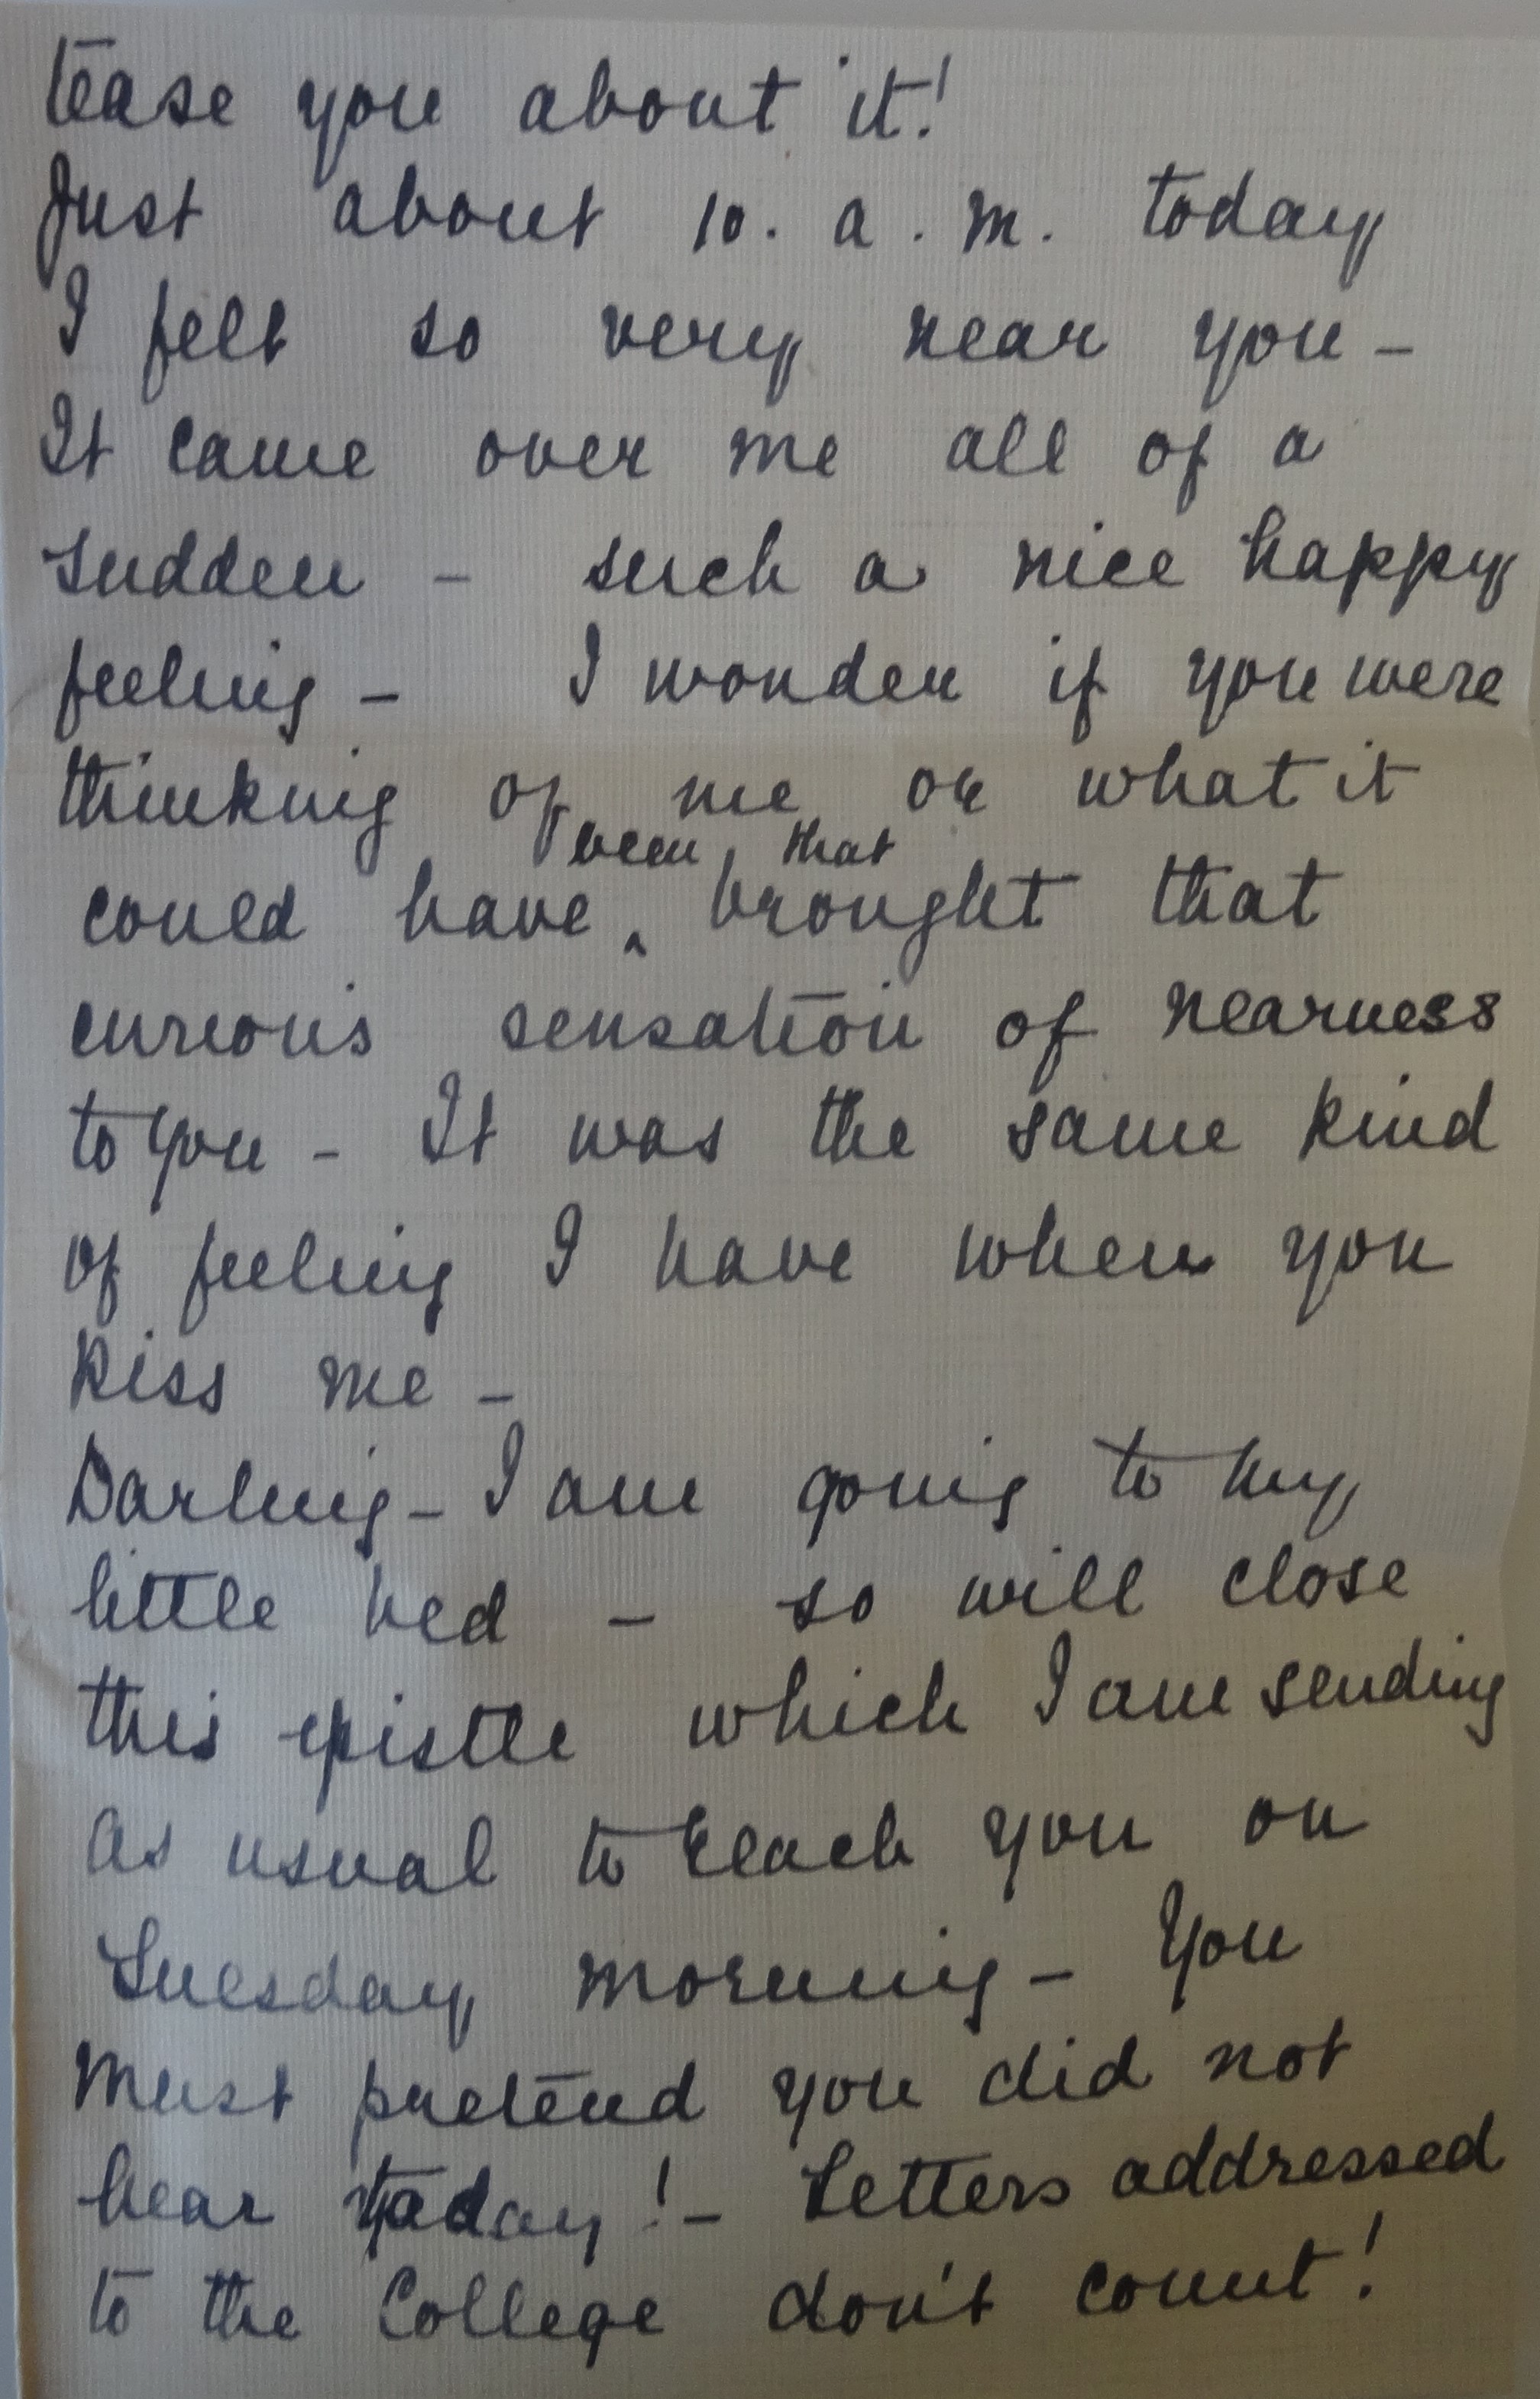 tease you about it!
Just about 10. a. m. today
I felt so very near you -
It came over me all of a
sudden - such a nice happy
feeling - I wonder if you were
thinking of me or what it
been, that
could have ‸ brought that
curious sensation of nearness
to you - It was the same kind
of feeling I have when you
kiss me -
Darling - I am going to my
little bed - so will close
this epistle which I am sending
as usual to reach you on
Tuesday morning - You
must pretend you did not
hear today! - Letters addressed
to the College don't count!